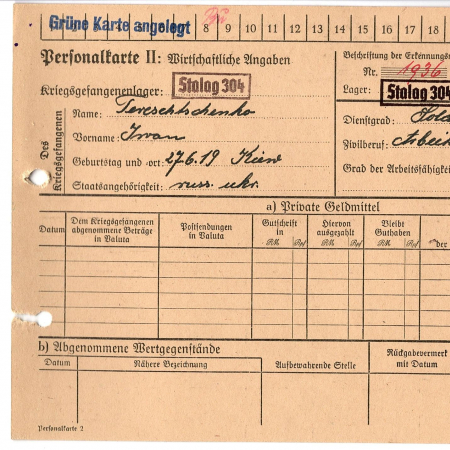 Grüne Karte angelegt 8 9 10 11 12 13 14 15 16 17 18
Personalkarte II: Wirtschaftliche Angaben
Beschriftung der Erkennungsm
Nr. 1936
Kriegsgefangenenlager: Stalag 304
Lager: Stalag 304
Des Kriegsgefangenen
Name: Tereschtschenko
Vorname: Iwan
Geburtstag und -ort: 27.6.19 Kiew
Staatsangehörigkeit: russ. ukr.
Dienstgrad: Solda
Zivilberuf: Arbei
Grad der Arbeitsfähigkei
a) Private Geldmittel
Datum
Dem Kriegsgefangenen abgenommene Beträge in Valuta
Postsendungen in Valuta
Gutschrift in
RM Rpf
Hiervon ausgezahlt
RM Rpf
Bleibt Guthaben
RM Rpf
der
b) Abgenommene Wertgegenstände
Datum
Nähere Bezeichnung
Aufbewahrende Stelle
Rückgabevermerk mit Datum
Personalkarte 2